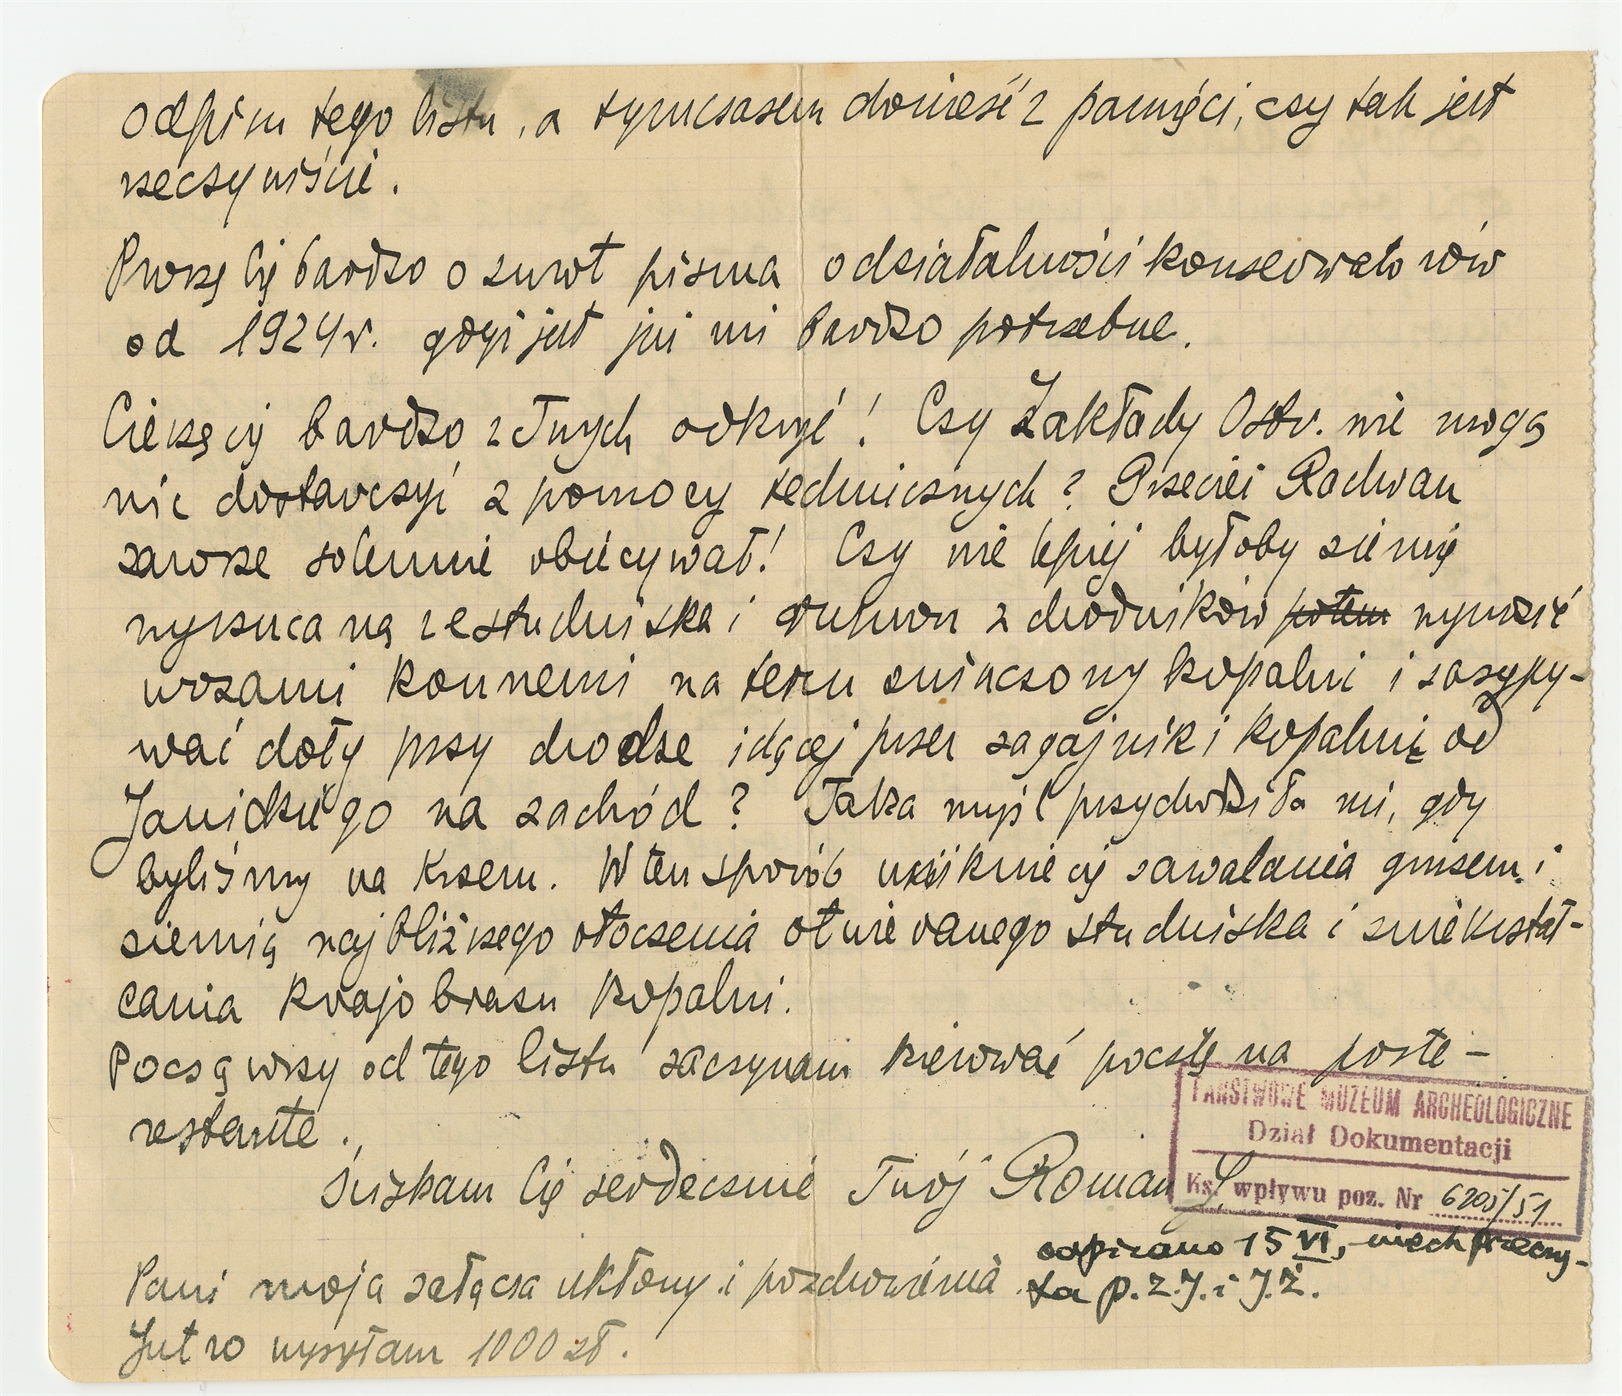 odpisu tego listu, a tymczasem donieść z pamięci, czy tak jest
rzeczywiście.
Proszę Cię bardzo o zwrot pisma o działalności konserwatorów
od 1924 r. gdyż jest już mi bardzo potrzebne.
Cieszę cię bardzo z Twych odkryć! Czy Zakłady Ostr. nie mogą
nic dostarczyć z pomocy technicznych? Przecież Radwan
zawsze solennie obiecywał! Czy nie lepiej byłoby ziemię
wyrzucaną ze studniska i z chodników potem wywozić
wozami konnemi na teren zniszczony kopalni i zasypy-
wać doły przy drodze idącej przez zagajnik i kopalnię od
Janickiego na zachód? Taka myśl przychodziła mi, gdy
byliśmy na Krzem. W ten sposób uniknie się zawalania gruzem i
ziemią najbliższego otoczenia otwieranego studniska i zniekształ-
cania krajobrazu kopalni.
Począwszy od tego listu zaczynam kierować pocztę na poste-
restante.
Ściskam Cię serdecznie Twój Roman J.
PAŃSTWOWE MUZEUM ARCHEOLOGICZNE
Dział Dokumentacji
Ks. wpływu poz. Nr 6205/51
odpisano 15 VI, niech przeczy-
ta p. Z.J. i J.Ż.
Pani moja załącza ukłony i pozdrowienia.
Jutro wysyłam 1000 zł.